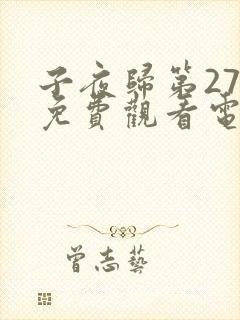 子夜歸第27
免費觀看電
曾志藝